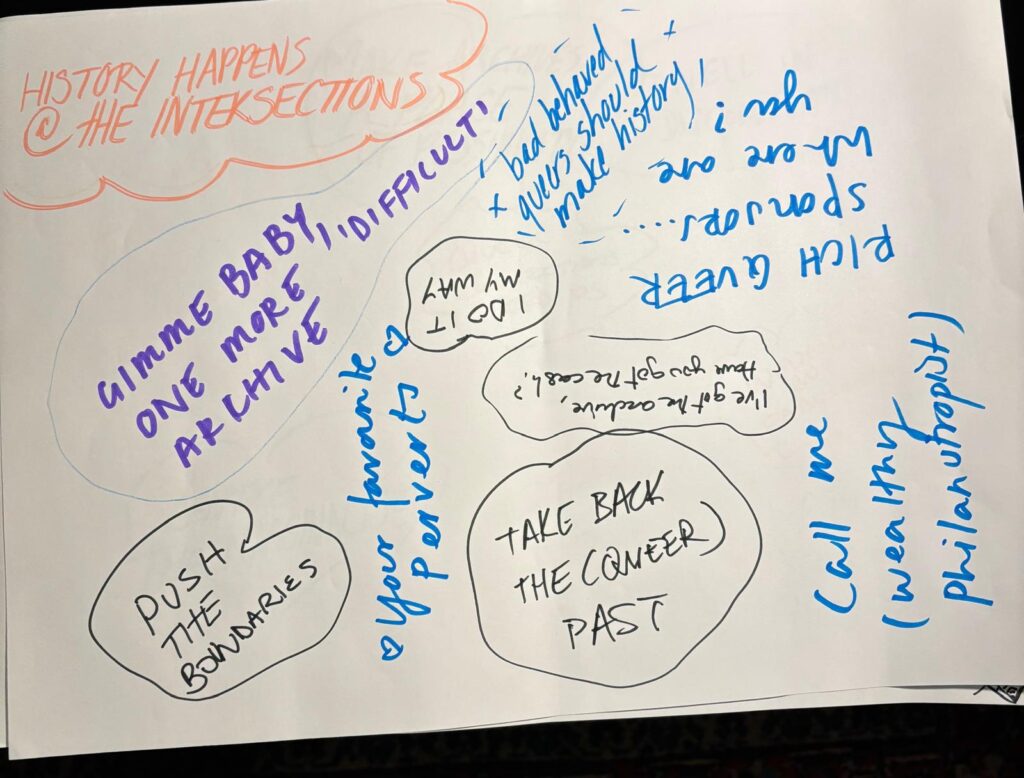 HISTORY HAPPENS
@ THE INTERSECTIONS
GIMME BABY,
ONE MORE 'DIFFICULT'
ARCHIVE
bad behaved
queers should
make history
RICH QUEER
SPONSORS....
Where are
you?
I DO IT
MY WAY
I've got the archive,
Have you got the cash?
♡ Your favourite ♡
perverts
TAKE BACK
THE (QUEER)
PAST
PUSH
THE
BOUNDARIES
Call me
(wealthy
philanthropist)